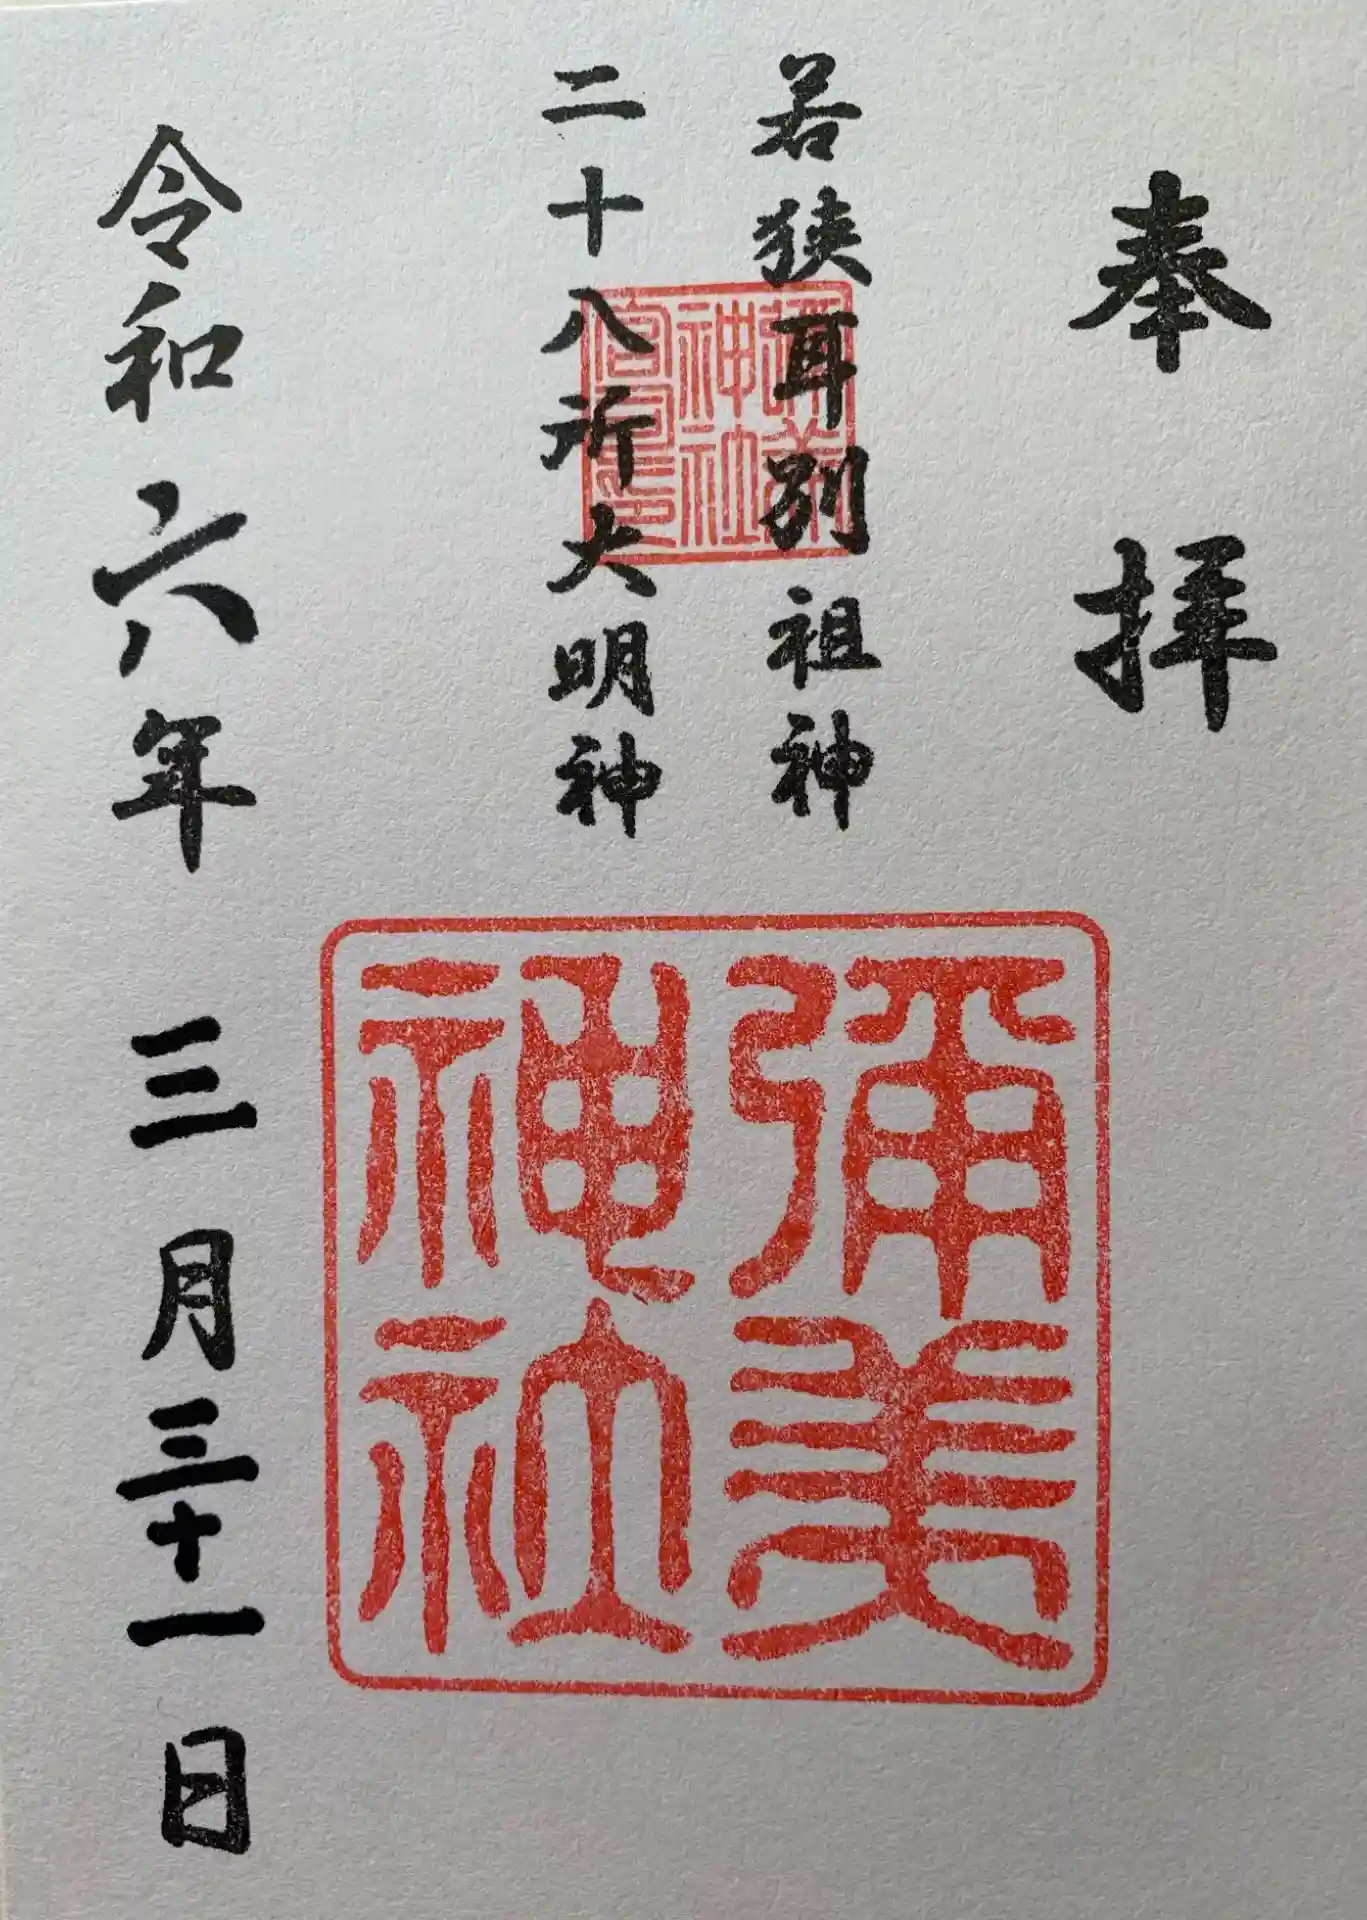 奉拝
若狭耳別祖神
二十八所大明神
彌美神社宮司之印
彌美神社
令和六年三月三十一日